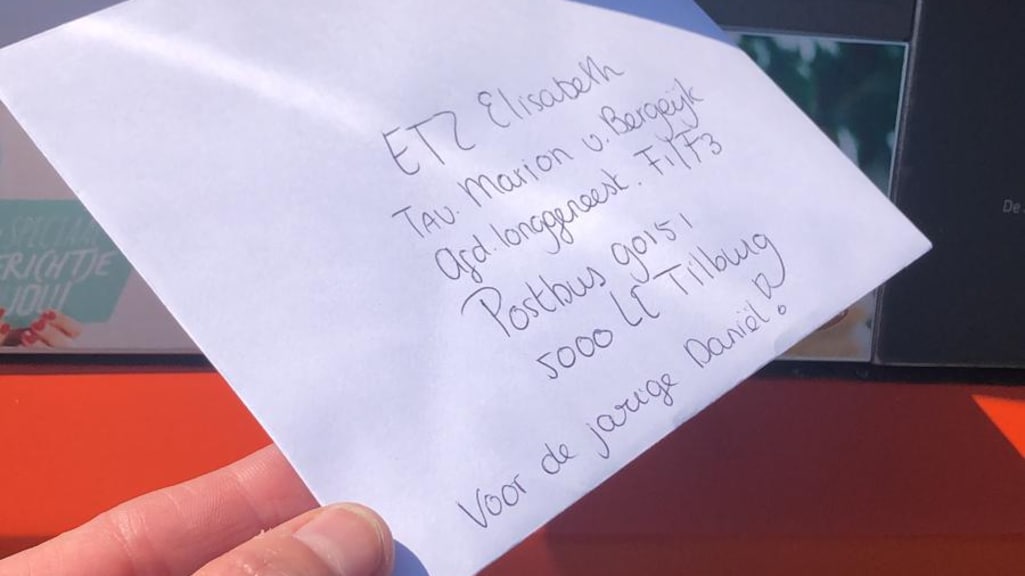 ETZ Elisabeth
TAV. Marion v. Bergeijk
Afd. longgeneest. F1/F3
Postbus 90151
5000 LC Tilburg
Voor de jarige Daniël!
SPECIA
RICHTJE
JOU!
De